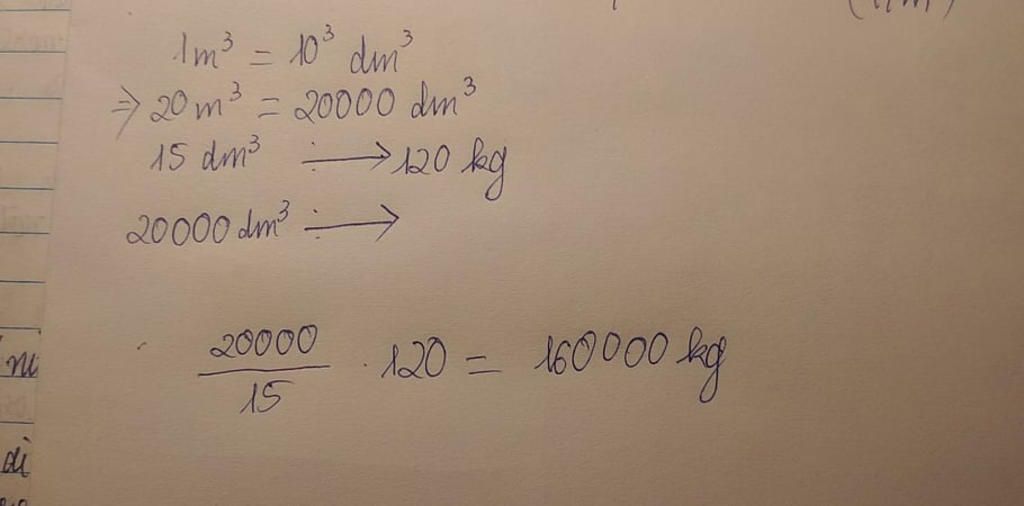 1m³ = 10³ dm³
⇒ 20m³ = 20000 dm³
15 dm³ ⟶ 120 kg
20000 dm³ ⟶
20000/15 · 120 = 160000 kg
di